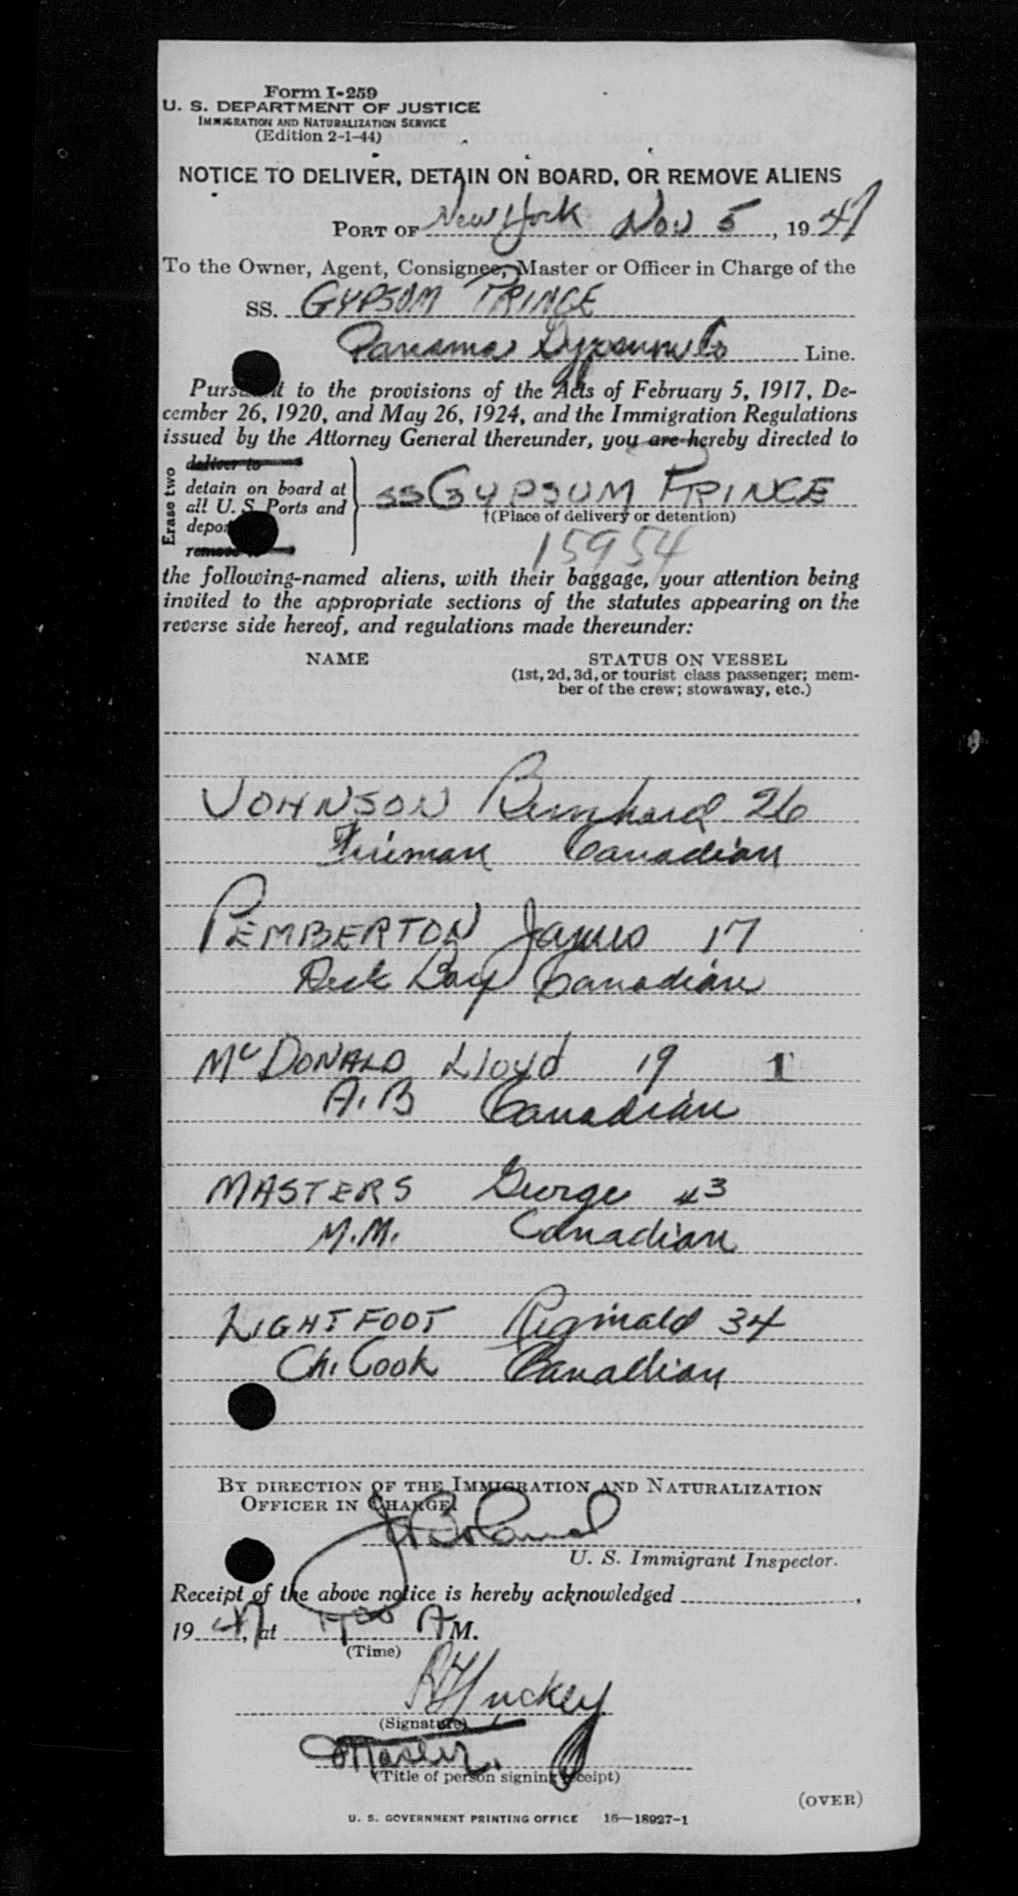 Form I-259
U. S. DEPARTMENT OF JUSTICE
IMMIGRATION AND NATURALIZATION SERVICE
(Edition 2-1-44)
NOTICE TO DELIVER, DETAIN ON BOARD, OR REMOVE ALIENS
PORT OF New York Nov 5, 1947
To the Owner, Agent, Consignee, Master or Officer in Charge of the
SS. GYPSUM PRINCE
Panama Gypsum Co Line.
Pursuant to the provisions of the Acts of February 5, 1917, De-
cember 26, 1920, and May 26, 1924, and the Immigration Regulations
issued by the Attorney General thereunder, you are hereby directed to
Erase two
deliver to
detain on board at
all U. S. Ports and
deport
remove to
SS GYPSUM PRINCE
†(Place of delivery or detention)
15954
the following-named aliens, with their baggage, your attention being
invited to the appropriate sections of the statutes appearing on the
reverse side hereof, and regulations made thereunder:
NAME STATUS ON VESSEL
(1st, 2d, 3d, or tourist class passenger; mem-
ber of the crew; stowaway, etc.)
JOHNSON Bernhard 26
Fireman Canadian
PEMBERTON James 17
Deck Boy Canadian
McDONALD Lloyd 19 1
A.B Canadian
MASTERS George 43
M.M. Canadian
LIGHTFOOT Reginald 34
Ch. Cook Canadian
BY DIRECTION OF THE IMMIGRATION AND NATURALIZATION
OFFICER IN CHARGE:
U. S. Immigrant Inspector.
Receipt of the above notice is hereby acknowledged ,
1947, at A M.
(Time)
(Signature)
Master.
(Title of person signing receipt)
(OVER)
U. S. GOVERNMENT PRINTING OFFICE 16—18927-1